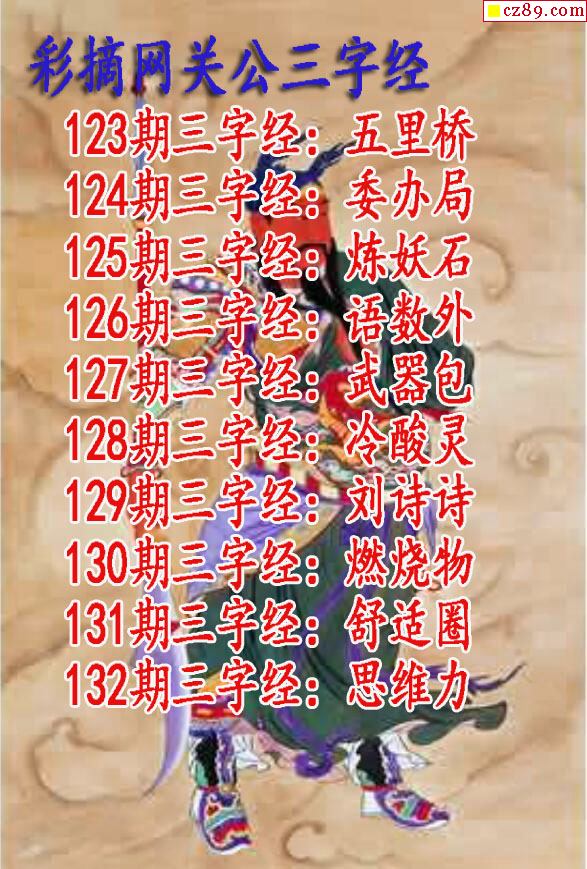 cz89.com
彩摘网关公三字经
123期三字经：五里桥
124期三字经：委办局
125期三字经：炼妖石
126期三字经：语数外
127期三字经：武器包
128期三字经：冷酸灵
129期三字经：刘诗诗
130期三字经：燃烧物
131期三字经：舒适圈
132期三字经：思维力